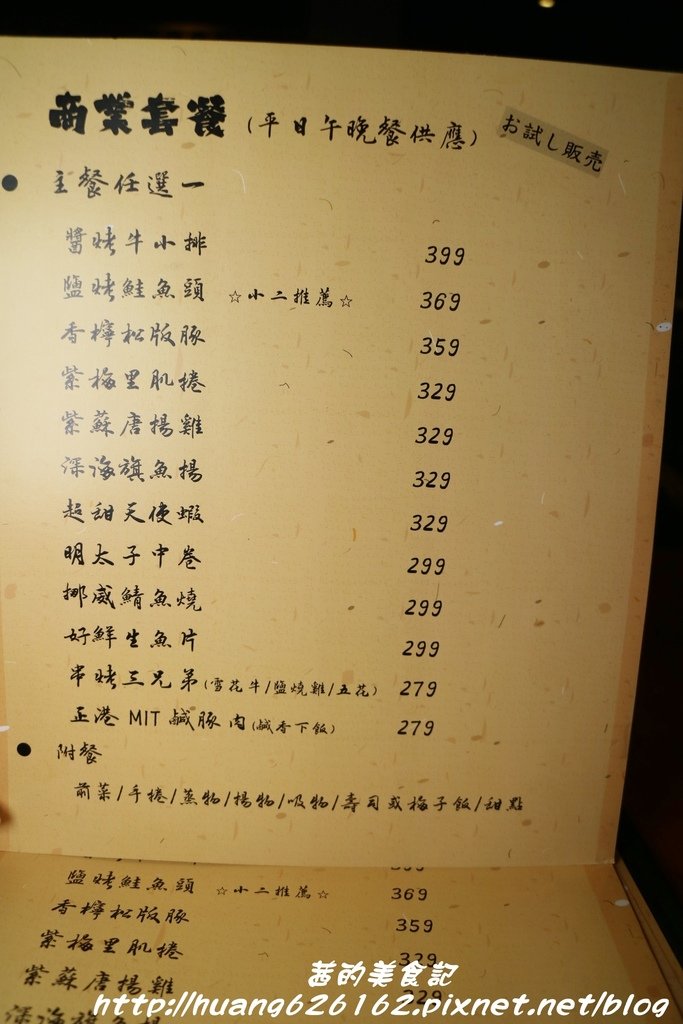 商業套餐 (平日午晚餐供應) お試し販売
主餐任選一
醬烤牛小排 399
鹽烤鮭魚頭 ☆小二推薦☆ 369
香檸松版豚 359
紫梅里肌捲 329
紫蘇唐揚雞 329
深海旗魚揚 329
超甜天使蝦 329
明太子中卷 299
挪威鯖魚燒 299
好鮮生魚片 299
串烤三兄弟(雪花牛/鹽燒雞/五花) 279
正港 MIT 鹹豚肉(鹹香下飯) 279
附餐
前菜/手捲/蒸物/揚物/吸物/壽司或梅子飯/甜點
鹽烤鮭魚頭 ☆小二推薦☆ 369
香檸松版豚 359
紫梅里肌捲 329
紫蘇唐揚雞 329
深海旗魚揚
茜的美食記
http://huang626162.pixnet.net/blog